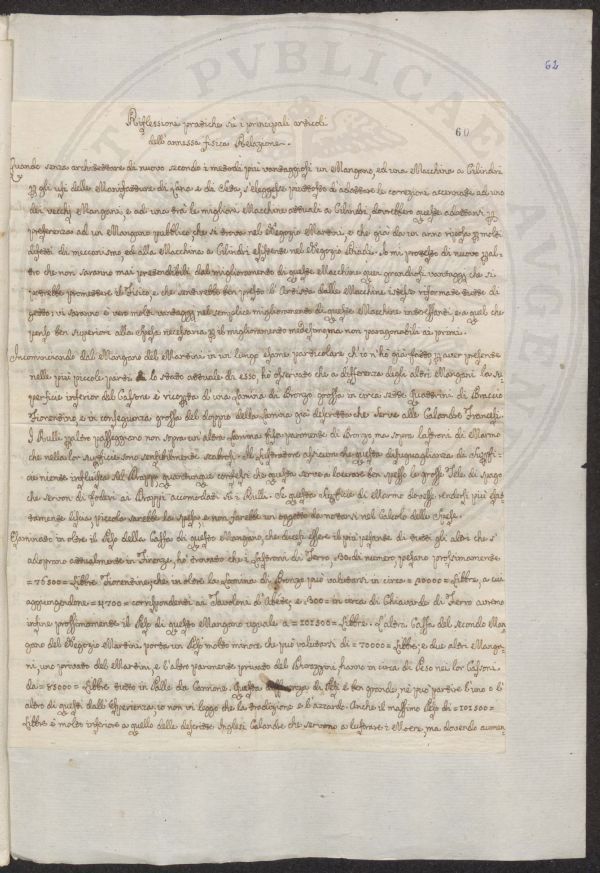 62
60
Riflessione pratiche sù i principali articoli
dell'annessa fisica Relazione.
Quando senza architettare di nuovo secondo i metodi più vantaggiosi un Mangano, ed una Macchina a Cilindri
gli usi delle Manifatture di Lana e da Seta, s'eleggesse piuttosto di adattare le correzioni accennate ad uno
dei vecchj Mangani, e ad una trà le migliori Macchine attuali a Cilindri, dovrebbesi queste adattarsi
preferenza ad un Mangano pubblico, che si trova nel Negozio Martini, e che già da un anno riposa molti
difetti di meccanismo, ed alla Macchina a Cilindri esistente nel Negozio Briadi. Io mi protesto di nuovo
tro che non saranno mai presendibili dal miglioramento di queste Macchine quei grandiosi vantaggj che si
potrebbe promettere il Fisico, e che sentirebbe ben presto l'Artista dalle Macchine istesse riformate tutte di
getto: vi saranno è vero molti vantaggj nel semplice miglioramento di queste Macchine interessanti, e a quel che
penso ben superiori alla spesa necessaria il miglioramento medesimo, ma non paragonabili ai primi.
Incominciando dal Mangano del Martini in un lungo esame particolare ch'io n'hò già fatto aver presente
nelle più piccole parti lo stato attuale di esso, hò osservato che a differenza degli altri Mangani la su-
perficie inferior del Cassone è ricoperta di una Lamina di Bronzo grossa in circa sette Quattrini di Braccio
Fiorentino e in conseguenza grossa del doppio della Lamina già descritta che serve alle Calandre Francesi.
I Rulli altro passeggiano non sopra un'altra Lamina fissa parimente di Bronzo ma sopra lastroni di Marmo
che nella lor superficie sono sensibilmente scabrosi. Il Lustratore asserisce che questa disuguaglianza di superfi-
cie niente influisca sul Drappo quantunque confessi che questa serve a lacerare ben spesso le grosse Tele di spago
che servon di foderi ai Drappi accomodati sù i Rulli. Se questa superficie di Marmo dovesse rendersi più esat-
tamente liscia, piccola sarebbe la spesa, e non sarebbe un oggetto da notarsi nel Calcolo delle Spese.
Esaminato in oltre il Peso della Cassa di questo Mangano, che dicesi essere il più pesante di tutti gli altri che s'
adoprano attualmente in Firenze, hò trovato che i Lastroni di Ferro, di numero, pesano prossimamente
= 76500 = Libbre Fiorentine, che in oltre la Lamina di Bronzo può valutarsi in circa a = 20000 = Libbre, a cui
aggiungendone = 4700 = corrispondenti ai Tavoloni d'Abete, e = 300 = in circa di Chiavarde di Ferro avremo
infine prossimamente il Peso di questo Mangano uguale a = 101500 = Libbre. L'altra Cassa del secondo Man-
gano del Negozio Martini, porta un Peso molto minore che può valutarsi di = 70000 = Libbre; e due altri Manga-
ni, uno privato del Martini, e l'altro parimente privato del Brozzini hanno in circa di Peso nei lor Cassoni
da = 85000 = Libbre tutto in Palle da Cannone. Questa differenza di Pesi è ben grande, nè può partire l'uno o l'
altro di questi dall'Esperienza: io non vi leggo che la tradizione e l'azzardo. Anche il massimo Peso di = 101500 =
Libbre è molto inferiore a quello delle descritte Inglesi Calandre che servono a lustrare i Moerre, ma dovendo aumen-